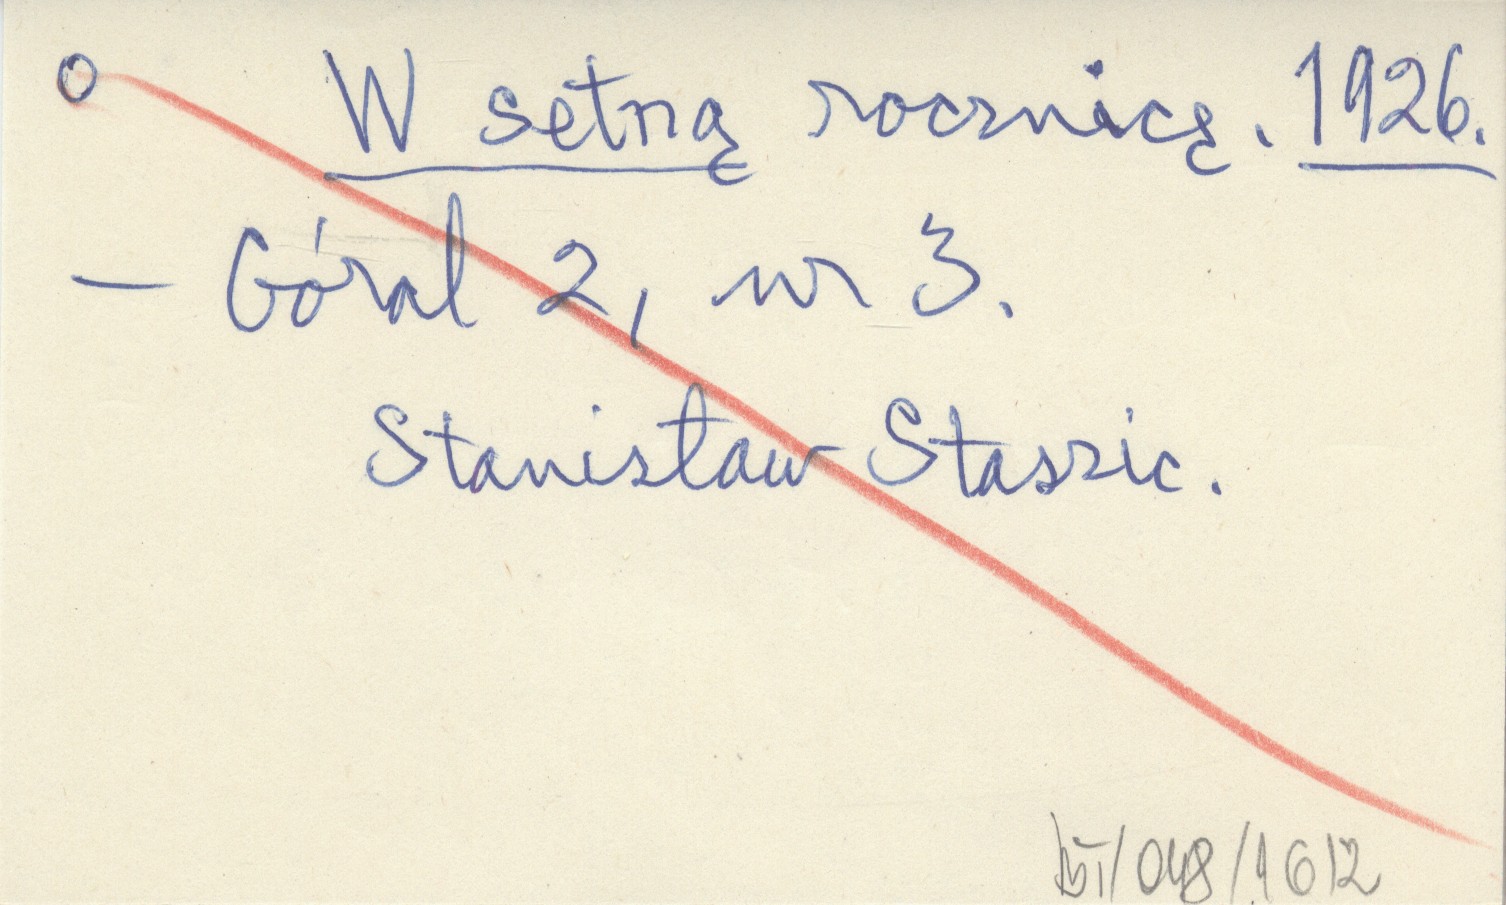 O W setną rocznicę. 1926.
— Góral 2, nr 3.
Stanisław Staszic.
/048/1612